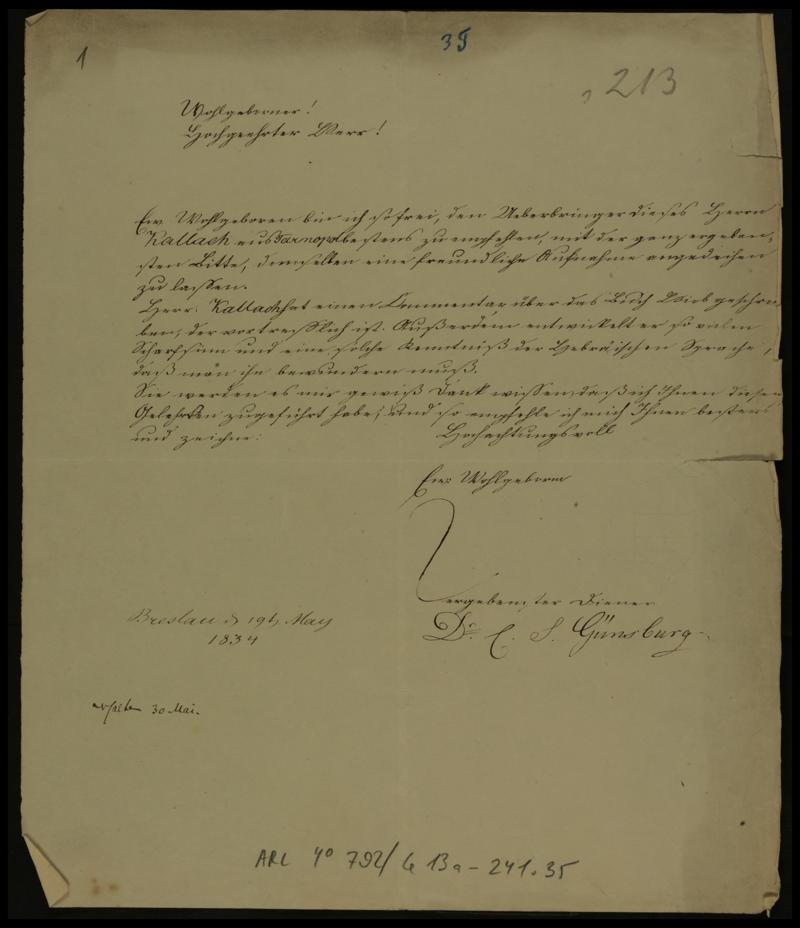 1
35
213
Wohlgeborner!
Hochgeehrter Herr!
Ew. Wohlgeboren bin ich so frei, den Ueberbringer dieses Herrn
Kallach aus Tarnopol bestens zu empfehlen, mit der ganz ergeben,
sten Bitte, demselben eine freundliche Aufnahme angedeihen
zu lassen.
Herr Kallach hat einen Commentar über das Buch Hiob geschrie
ben, der vortrefflich ist. Außerdem entwickelt er so vielen
Scharfsinn und eine solche Kenntniß der Hebräischen Sprache,
daß man ihn bewundern muß.
Sie werden es mir gewiß Dank wissen, daß ich Ihnen diesen
Gelehrten zugeführt habe, und so empfehle ich mich Ihnen bestens
und zeichne:
Hochachtungsvoll
Ew. Wohlgeboren
ergebenster Diener
Dr. C. S. Günsburg
Breslau d 19t May
1834
erhalten 30 Mai.
ARC 4° 792/ 13a - 241.35